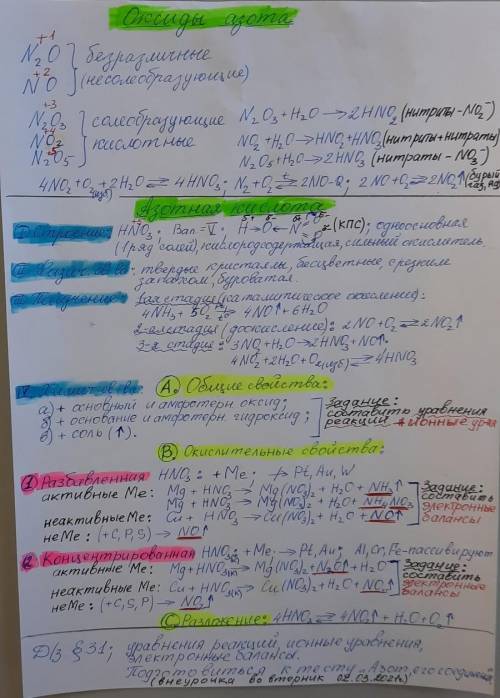 Оксиды азота
+1
N2O } безразличные
+2
NO } (несолеобразующие)
+3
N2O3 } солеобразующие N2O3 + H2O → 2HNO2 (нитриты - NO2⁻)
+4
NO2 } кислотные NO2 + H2O → HNO2 + HNO3 (нитриты + нитраты)
+5
N2O5 N2O5 + H2O → 2HNO3 (нитраты - NO3⁻)
4NO2 + O2(изб) + 2H2O ⇄ 4HNO3; N2 + O2 ⇄ 2NO - Q; 2NO + O2 ⇄ 2NO2↑ (бурый газ, яд)
Азотная кислота
I Строение: HNO3; Вал = V; H - O ← N (КПС); одноосновная
(1 ряд солей), кислородсодержащая, сильный окислитель.
II твердые кристаллы, бесцветные, с резким
запахом, буроватая.
III Получение: 1-ая стадия (каталитическое окисление):
4NH3 + 5O2 ⇄ 4NO↑ + 6H2O
2-ая стадия (доокисление): 2NO + O2 ⇄ 2NO2↑
3-я стадия: 3NO2 + H2O → 2HNO3 + NO↑
4NO2 + 2H2O + O2(изб) ⇄ 4HNO3
А. Общие свойства:
а) + основный и амфотерн. оксид;
б) + основание и амфотерн. гидроксид;
в) + соль (↑).
Задание:
составить уравнения
реакций + ионные урая
В. Окислительные свойства:
1 Разбавленная HNO3: + Me; Pt, Au, W
активные Ме: Mg + HNO3 → Mg(NO3)2 + H2O + NH3↑
Mg + HNO3 → Mg(NO3)2 + H2O + NH4NO3
неактивные Ме: Cu + HNO3 → Cu(NO3)2 + H2O + NO↑
неМе: (+C, P, S) → NO↑
Задание:
составить
электронные
балансы
2 Концентрированная HNO3: + Me; Pt, Au; Al, Cr, Fe - пассивируют
активные Ме: Mg + HNO3(к) → Mg(NO3)2 + N2O↑ + H2O
неактивные Ме: Cu + HNO3(к) → Cu(NO3)2 + H2O + NO2↑
неМе: (+C, S, P) → NO2↑
Задание:
составить
электронные
балансы
С. Разложение: 4HNO3 → 4NO2↑ + H2O + O2↑
Д/з § 31; уравнения реакций, ионные уравнения,
электронные балансы.
Подготовиться к тесту „Азот, его соединения
(внеурочка во вторник 02.03.2021г.)